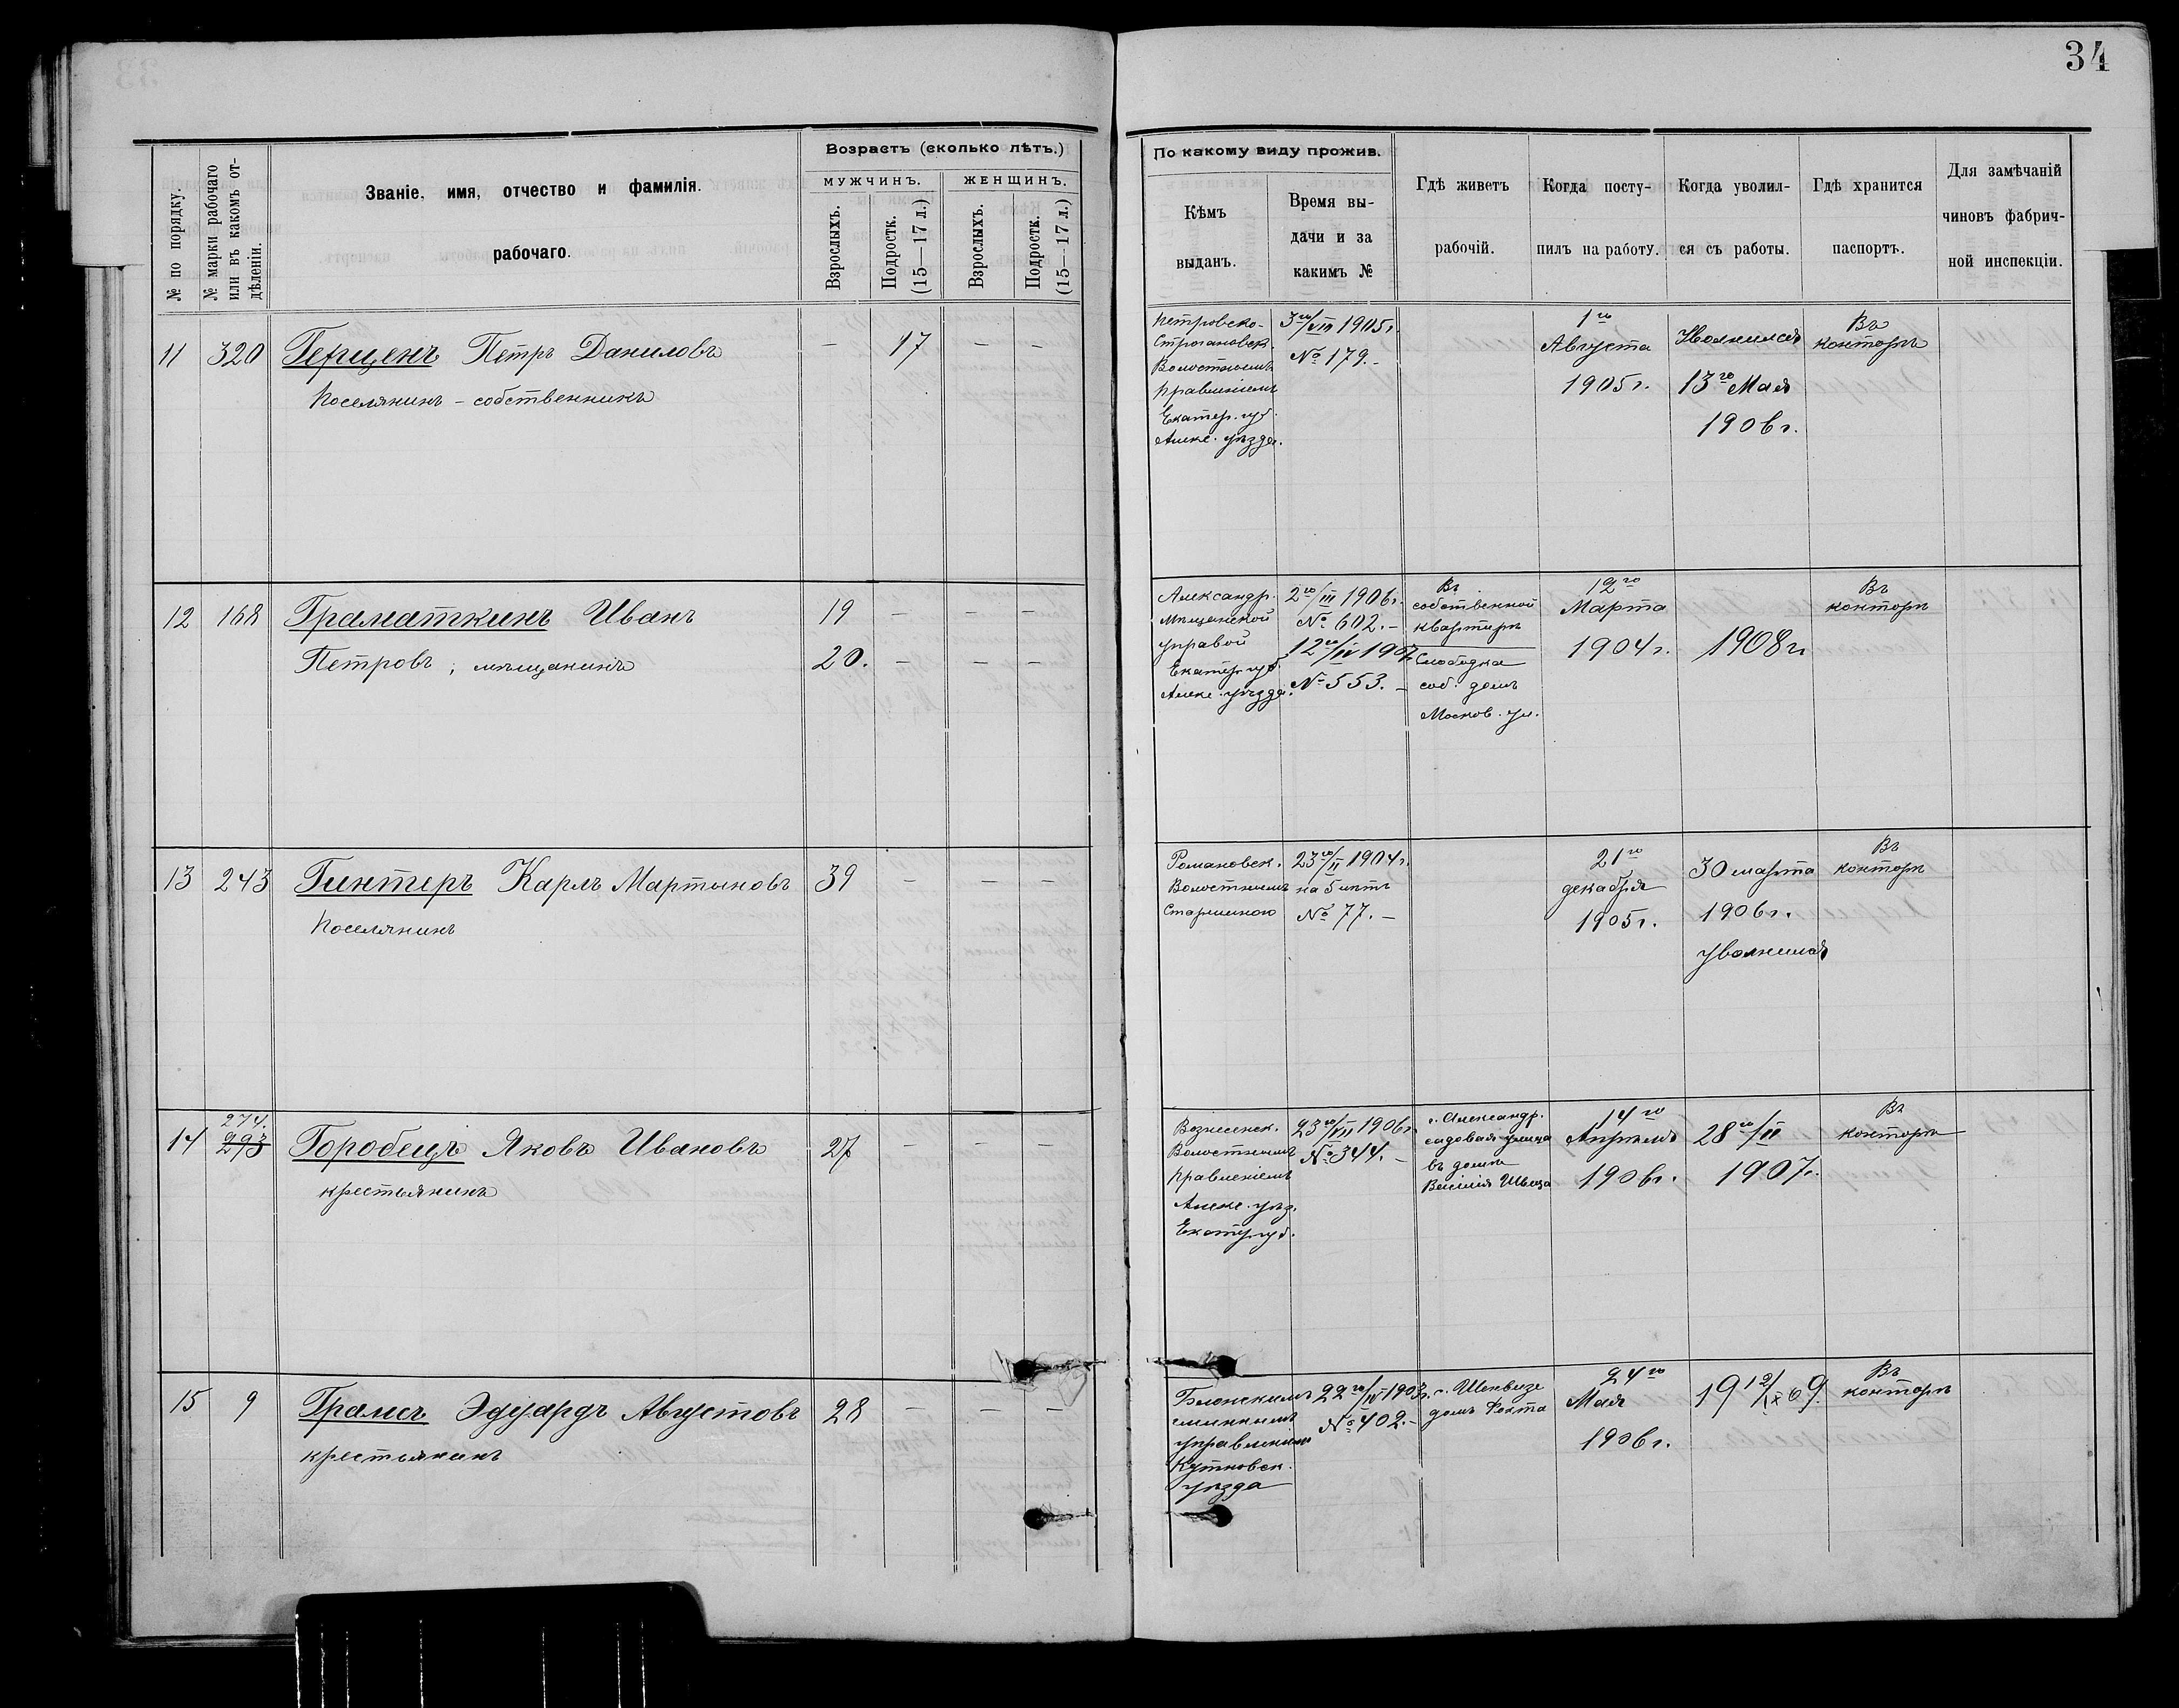 34
№ по порядку.
№ марки рабочаго
или въ какомъ от-
дѣленіи.
Званіе, имя, отчество и фамилія.
рабочаго.
Возрастъ (сколько лѣтъ.)
МУЖЧИНЪ.
ЖЕНЩИНЪ.
Взрослыхъ.
Подростк.
(15—17 л.)
Взрослыхъ.
Подростк.
(15—17 л.)
По какому виду прожив.
Кѣмъ
выданъ.
Время вы-
дачи и за
какимъ №
Гдѣ живетъ
рабочій.
Когда посту-
пилъ на работу.
Когда уволил-
ся съ работы.
Гдѣ хранится
паспортъ.
Для замѣчаній
чиновъ фабрич-
ной инспекціи.
11
320
Герценъ Петръ Даниловъ
Поселянинъ - собственникъ
—
17
—
—
Петровско-
Строгановск.
Волостнымъ
правленіемъ
Екатер. губ.
Алекс. уѣзда.
3го/VIII 1905 г.
№ 179. -
1го
Августа
1905 г.
Уволился
13го Мая
1906 г.
Въ
конторѣ
12
168
Граматкинъ Иванъ
Петровъ, мѣщанинъ
19
20.
—
—
—
—
—
—
Александр.
Мѣщанской
управой
Екатер. губ.
Алекс. уѣзда.
2го/III 1906 г.
№ 602. -
12го/IV 1907
№ 553. -
Въ
собственной
квартирѣ
Слободка
соб. домъ
Москов. ул.
12го
Марта
1904 г.
1908 г.
Въ
конторѣ
13
243
Гинтеръ Карлъ Мартыновъ
Поселянинъ
39
—
—
—
Романовск.
Волостнымъ
Старшиною
23го/II 1904 г.
на 5 лѣтъ
№ 77. -
21го
декабря
1905 г.
30 марта
1906 г.
уволился
Въ
конторѣ
14
274.
293
Горобецъ Яковъ Ивановъ
крестьянинъ
27
—
—
—
Вознесенск.
Волостнымъ
правленіемъ
Алекс. уѣзд.
Екатер. губ.
23го/VIII 1906 г.
№ 344. -
г. Александр.
садовая улица
въ домѣ
Василія Швеца
14го
Апрѣля
1906 г.
28го/II
1907 г.
Въ
конторѣ
15
9
Грамсъ Эдуардъ Августовъ
крестьянинъ
28
—
—
—
управленіемъ
Кутновск.
уѣзда
№ 402. -
домъ Фохта
24го
Мая
1906 г.
19 12/IX 09.
Въ
конторѣ